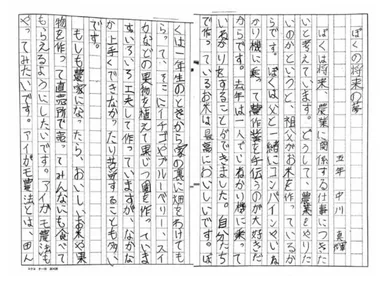 ぼくの将来の夢
五年 中川
ぼくは将来、農業に関係する仕事につきた
いと考えています。どうして、農業をやりた
いのかというと、祖父がお米を作っているか
らです。ぼくは父と一緒にコンバインやいね
かり機に乗って農作業を手伝うのが大好きだ
からです。去年は一人でいねかり機に乗って
いねかりをすることができました。自分たち
で作っているお米は最高においしいです。ぼ
くは一年生のときから家の裏に畑をわけても
らって、そこにイチゴやブルーベリー、スイ
カなどの果物を植えて果じつ園を作っていま
す。いろいろ工夫して作っていますが、なかな
か上手くできなかったり苦労することも多い
です。
もしも農家になったら、おいしいお米や果
物を作って直売所で売ってみんなにも食べて
もらえるようにしたいです。アイガモ農法も
やってみたいです。アイガモ農法とは、田ん